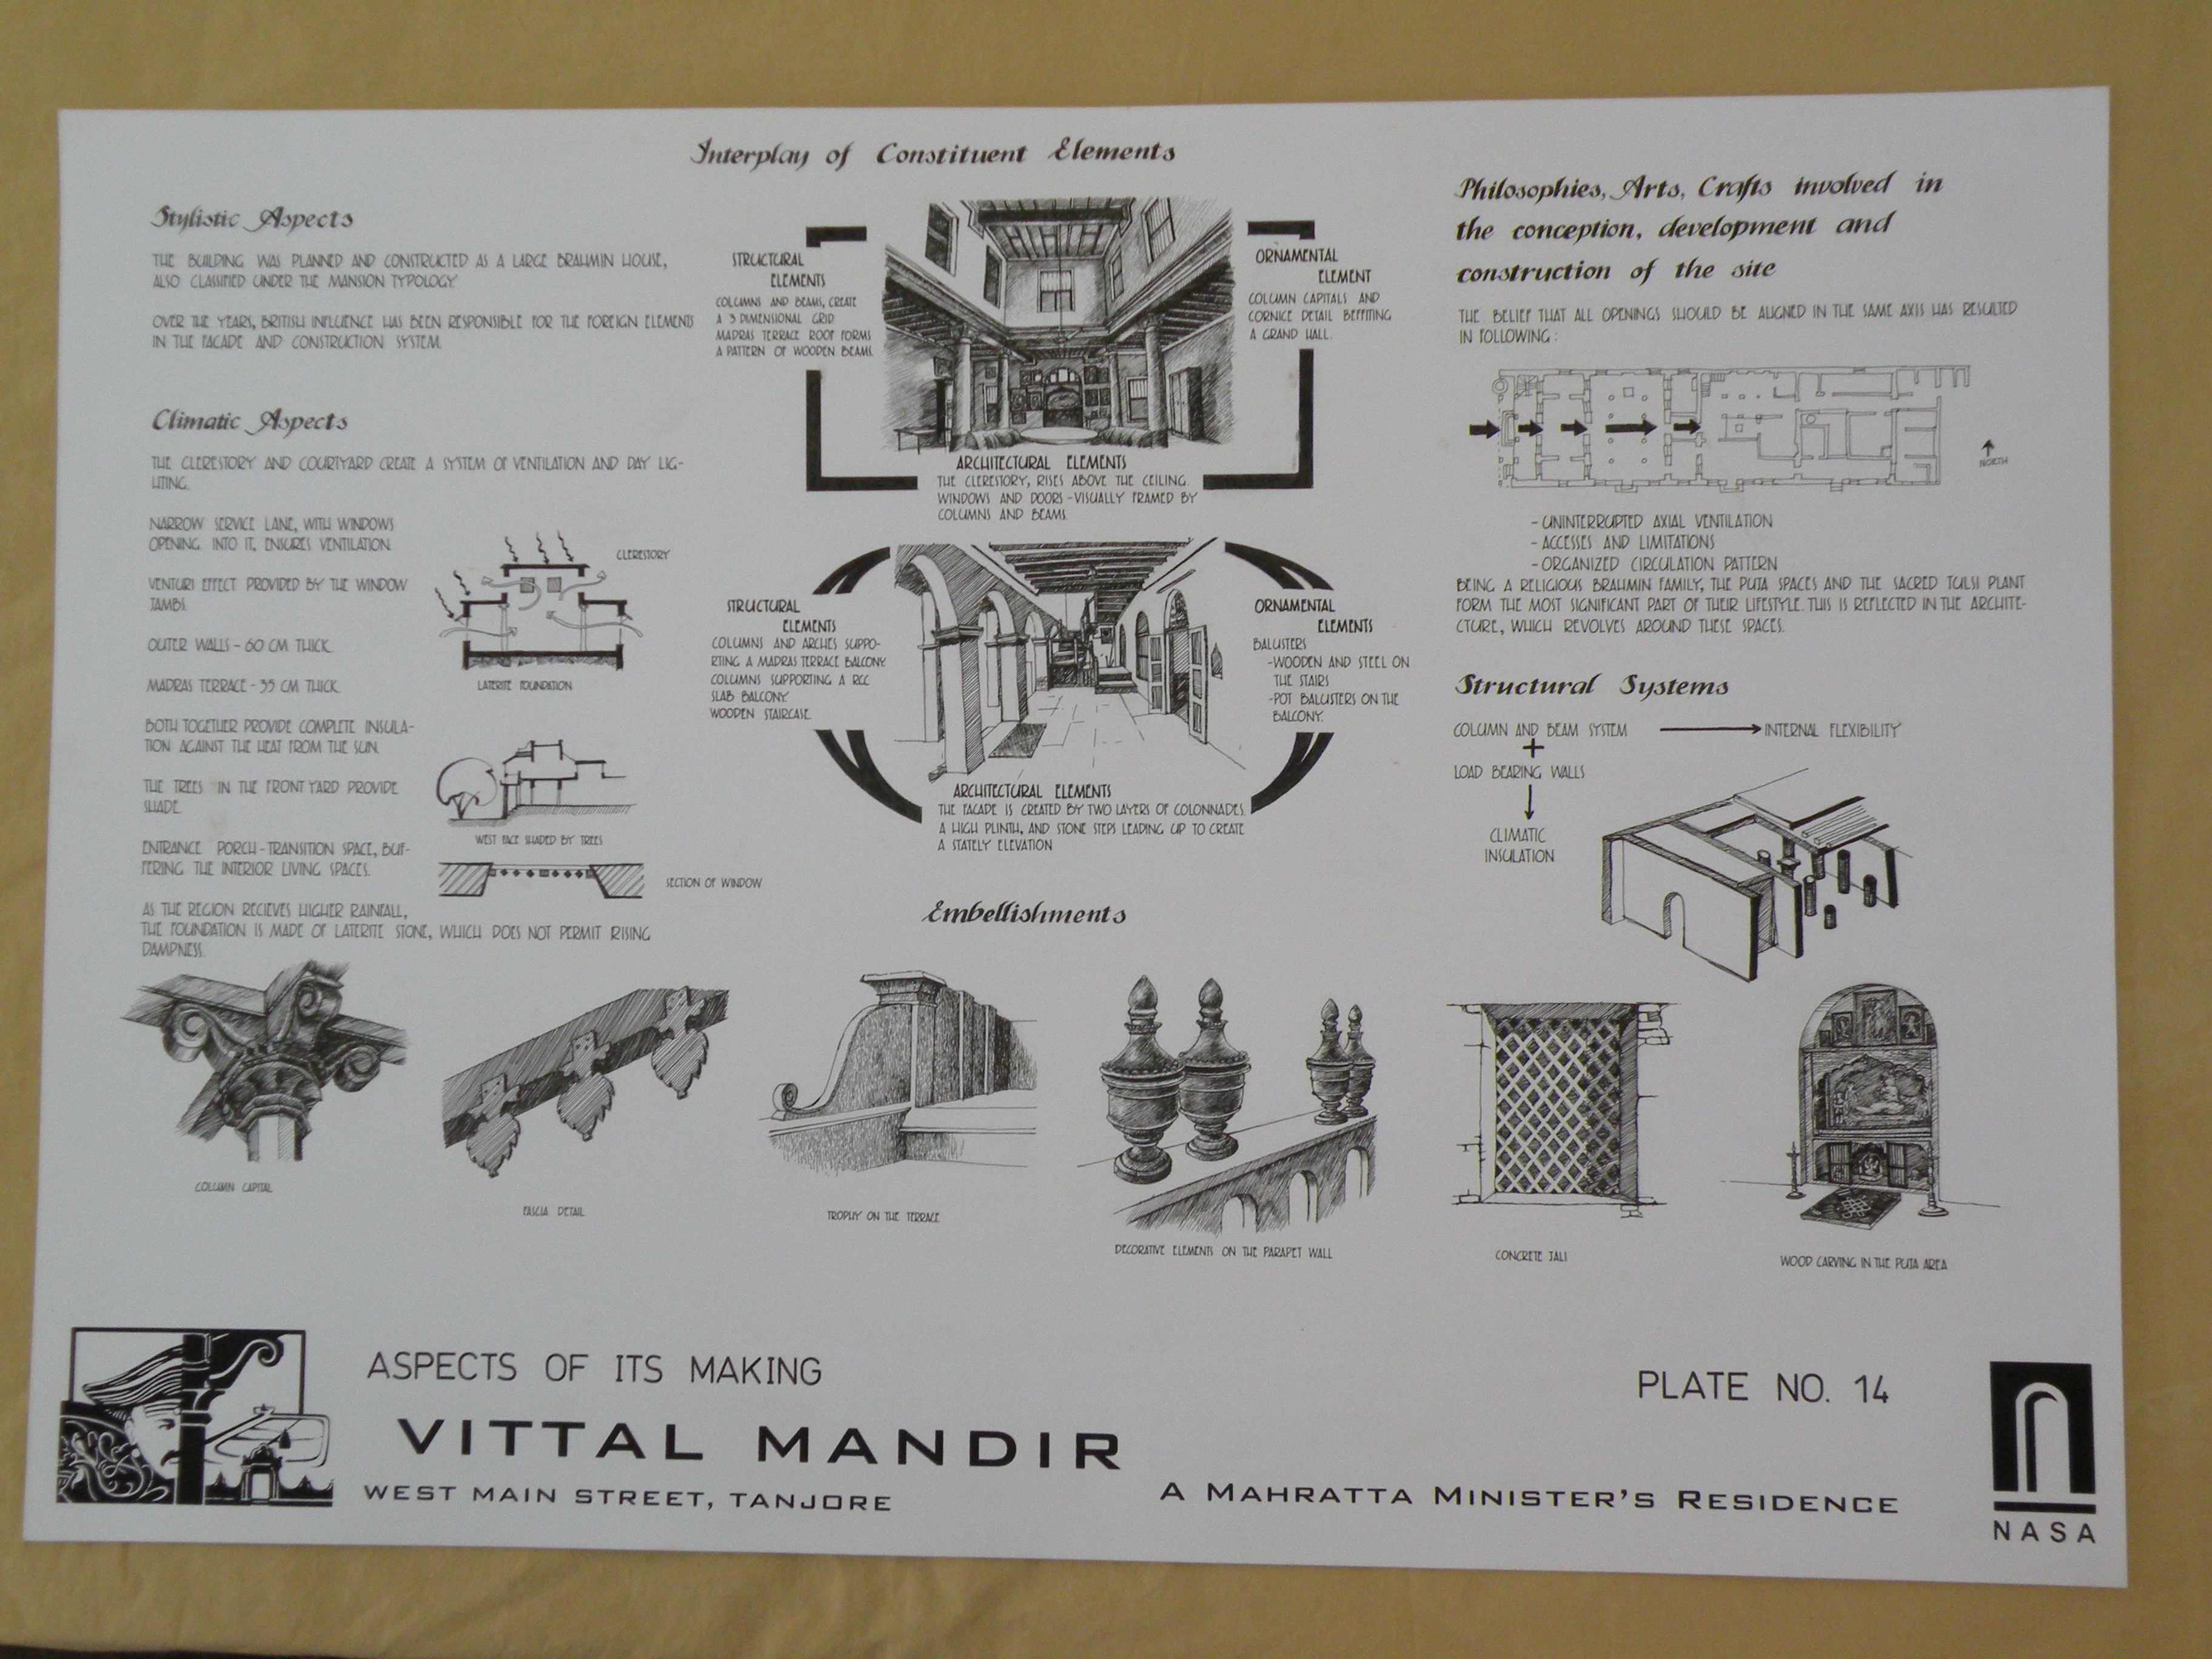 Interplay of Constituent Elements
Stylistic Aspects
THE BUILDING WAS PLANNED AND CONSTRUCTED AS A LARGE BRAHMIN HOUSE,
ALSO CLASSIFIED UNDER THE MANSION TYPOLOGY.
OVER THE YEARS, BRITISH INFLUENCE HAS BEEN RESPONSIBLE FOR THE FOREIGN ELEMENTS
IN THE FACADE AND CONSTRUCTION SYSTEM.
Climatic Aspects
THE CLERESTORY AND COURTYARD CREATE A SYSTEM OF VENTILATION AND DAY LIG-
HTING.
NARROW SERVICE LANE, WITH WINDOWS
OPENING INTO IT, ENSURES VENTILATION.
VENTURI EFFECT PROVIDED BY THE WINDOW
JAMBS.
OUTER WALLS - 60 CM THICK.
MADRAS TERRACE - 35 CM THICK.
BOTH TOGETHER PROVIDE COMPLETE INSULA-
TION AGAINST THE HEAT FROM THE SUN.
THE TREES IN THE FRONT YARD PROVIDE
SHADE.
ENTRANCE PORCH - TRANSITION SPACE, BUF-
FERING THE INTERIOR LIVING SPACES.
AS THE REGION RECIEVES HIGHER RAINFALL,
THE FOUNDATION IS MADE OF LATERITE STONE, WHICH DOES NOT PERMIT RISING
DAMPNESS.
CLERESTORY
LATERITE FOUNDATION
WEST FACE SHADED BY TREES
SECTION OF WINDOW
STRUCTURAL
ELEMENTS
COLUMNS AND BEAMS, CREATE
A 3 DIMENSIONAL GRID
MADRAS TERRACE ROOF FORMS
A PATTERN OF WOODEN BEAMS.
ORNAMENTAL
ELEMENT
COLUMN CAPITALS AND
CORNICE DETAIL BEFFITING
A GRAND HALL.
ARCHITECTURAL ELEMENTS
THE CLERESTORY, RISES ABOVE THE CEILING.
WINDOWS AND DOORS - VISUALLY FRAMED BY
COLUMNS AND BEAMS.
STRUCTURAL
ELEMENTS
COLUMNS AND ARCHES SUPPO-
RTING A MADRAS TERRACE BALCONY.
COLUMNS SUPPORTING A RCC
SLAB BALCONY.
WOODEN STAIRCASE.
ORNAMENTAL
ELEMENTS
BALUSTERS
-WOODEN AND STEEL ON
THE STAIRS
-POT BALUSTERS ON THE
BALCONY.
ARCHITECTURAL ELEMENTS
THE FACADE IS CREATED BY TWO LAYERS OF COLONNADES.
A HIGH PLINTH, AND STONE STEPS LEADING UP TO CREATE
A STATELY ELEVATION
Philosophies, Arts, Crafts involved in
the conception, development and
construction of the site
THE BELIEF THAT ALL OPENINGS SHOULD BE ALIGNED IN THE SAME AXIS HAS RESULTED
IN FOLLOWING :
NORTH
- UNINTERRUPTED AXIAL VENTILATION
- ACCESSES AND LIMITATIONS
- ORGANIZED CIRCULATION PATTERN
BEING A RELIGIOUS BRAHMIN FAMILY, THE PUJA SPACES AND THE SACRED TULSI PLANT
FORM THE MOST SIGNIFICANT PART OF THEIR LIFESTYLE. THIS IS REFLECTED IN THE ARCHITE-
CTURE, WHICH REVOLVES AROUND THESE SPACES.
Structural Systems
COLUMN AND BEAM SYSTEM INTERNAL FLEXIBILITY
+
LOAD BEARING WALLS
CLIMATIC
INSULATION
Embellishments
COLUMN CAPITAL
FASCIA DETAIL
TROPHY ON THE TERRACE
DECORATIVE ELEMENTS ON THE PARAPET WALL
CONCRETE JALI
WOOD CARVING IN THE PUJA AREA
ASPECTS OF ITS MAKING
PLATE NO. 14
VITTAL MANDIR
WEST MAIN STREET, TANJORE
A MAHRATTA MINISTER'S RESIDENCE
NASA